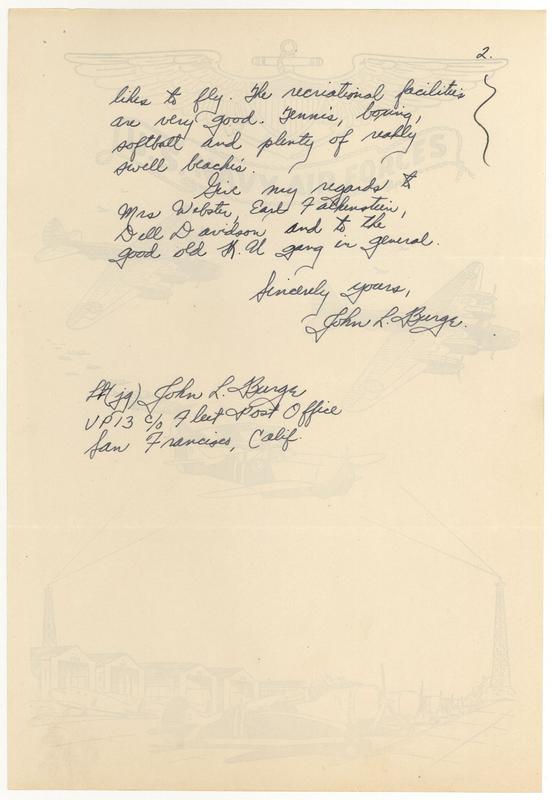 2.
likes to fly. The recriational facilities
are very good. Tennis, boxing,
softball and plenty of really
swell beachs.
Give my regards to
Mrs Webster, Earl Falkenstein,
Dell Davidson and to the
good old K.U gang in general.
Sincerely yours,
John L. Burge.
Lt(jg) John L. Burge
VP13 c/o Fleet Post Office
San Francisco, Calif.